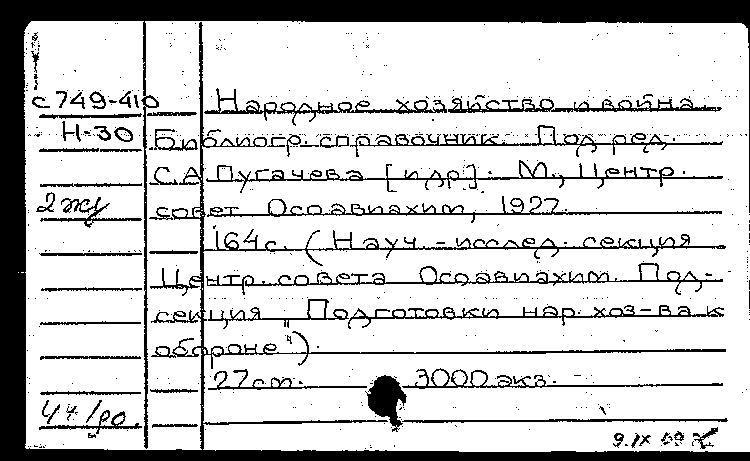 с749-410 Народное хозяйство и война.
Н-30 Библиогр. справочник. Под ред.
С.А. Пугачева [и др]. М., Центр.
2 жу совет Осоавиахим, 1927.
164с. (Науч-исслед. секция
Центр. совета Осоавиахим. Под-
секция „Подготовки нар. хоз-ва к
обороне").
27см. 3000 экз.
9.IX 69